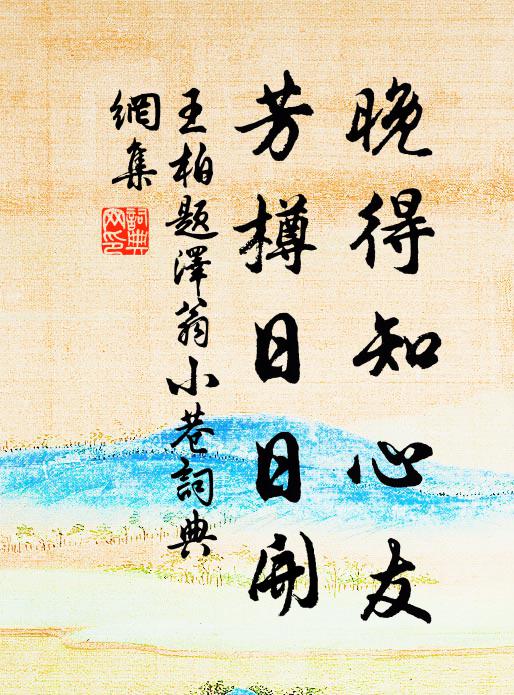 晚得知心友
芳樽日日開
王柏題澤翁小巷詞典
網集
詞典
網印